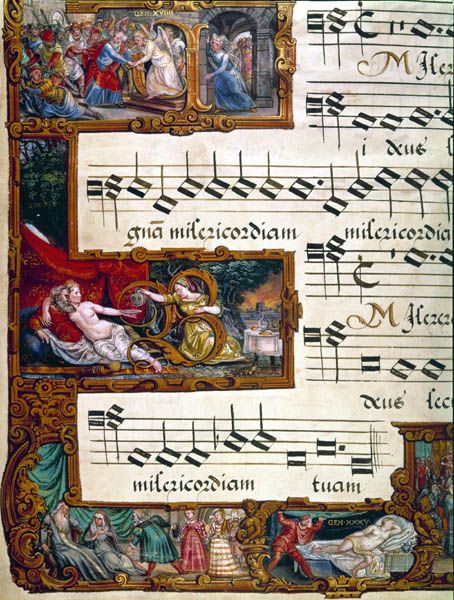 GEN·XVIIII·
Miſere
i deus ſ
gnā miſericordiam miſericordia
Miſere
deus ſec
miſericordiam tuam
GEN·XXXV·